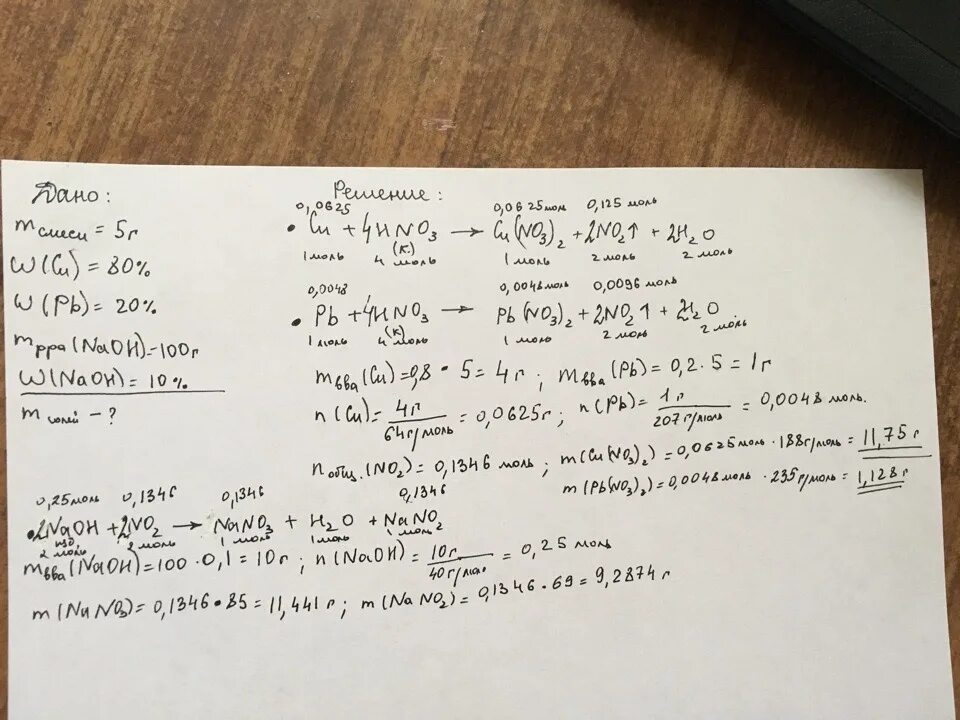 Дано:
m смеси = 5г
W(Cu) = 80%
W(Pb) = 20%
m р-ра (NaOH) = 100г
W(NaOH) = 10%
m солей - ?
Решение:
0,0625 0,0625 моль 0,125 моль
• Cu + 4HNO₃ → Cu(NO₃)₂ + 2NO₂↑ + 2H₂O
(к.)
1 моль 4 моль 1 моль 2 моль 2 моль
0,0048 0,0048 моль 0,0096 моль
• Pb + 4HNO₃ → Pb(NO₃)₂ + 2NO₂↑ + 2H₂O
(к)
1 моль 4 моль 1 моль 2 моль 2 моль
m в-ва (Cu) = 0,8 • 5 = 4г ; m в-ва (Pb) = 0,2 • 5 = 1г
n(Cu) = 4г / 64г/моль = 0,0625г ; n(Pb) = 1г / 207г/моль = 0,0048 моль.
n общ. (NO₂) = 0,1346 моль ; m(Cu(NO₃)₂) = 0,0625 моль • 188г/моль = 11,75 г
m(Pb(NO₃)₂) = 0,0048 моль • 235г/моль = 1,128 г
0,25 моль 0,1346 0,1346 0,1346
• 2NaOH + 2NO₂ → NaNO₃ + H₂O + NaNO₂
изб.
2 моль 2 моль 1 моль 1 моль 1 моль
m в-ва (NaOH) = 100 • 0,1 = 10г ; n(NaOH) = 10г / 40г/моль = 0,25 моль
m(NaNO₃) = 0,1346 • 85 = 11,441 г ; m(NaNO₂) = 0,1346 • 69 = 9,2874 г